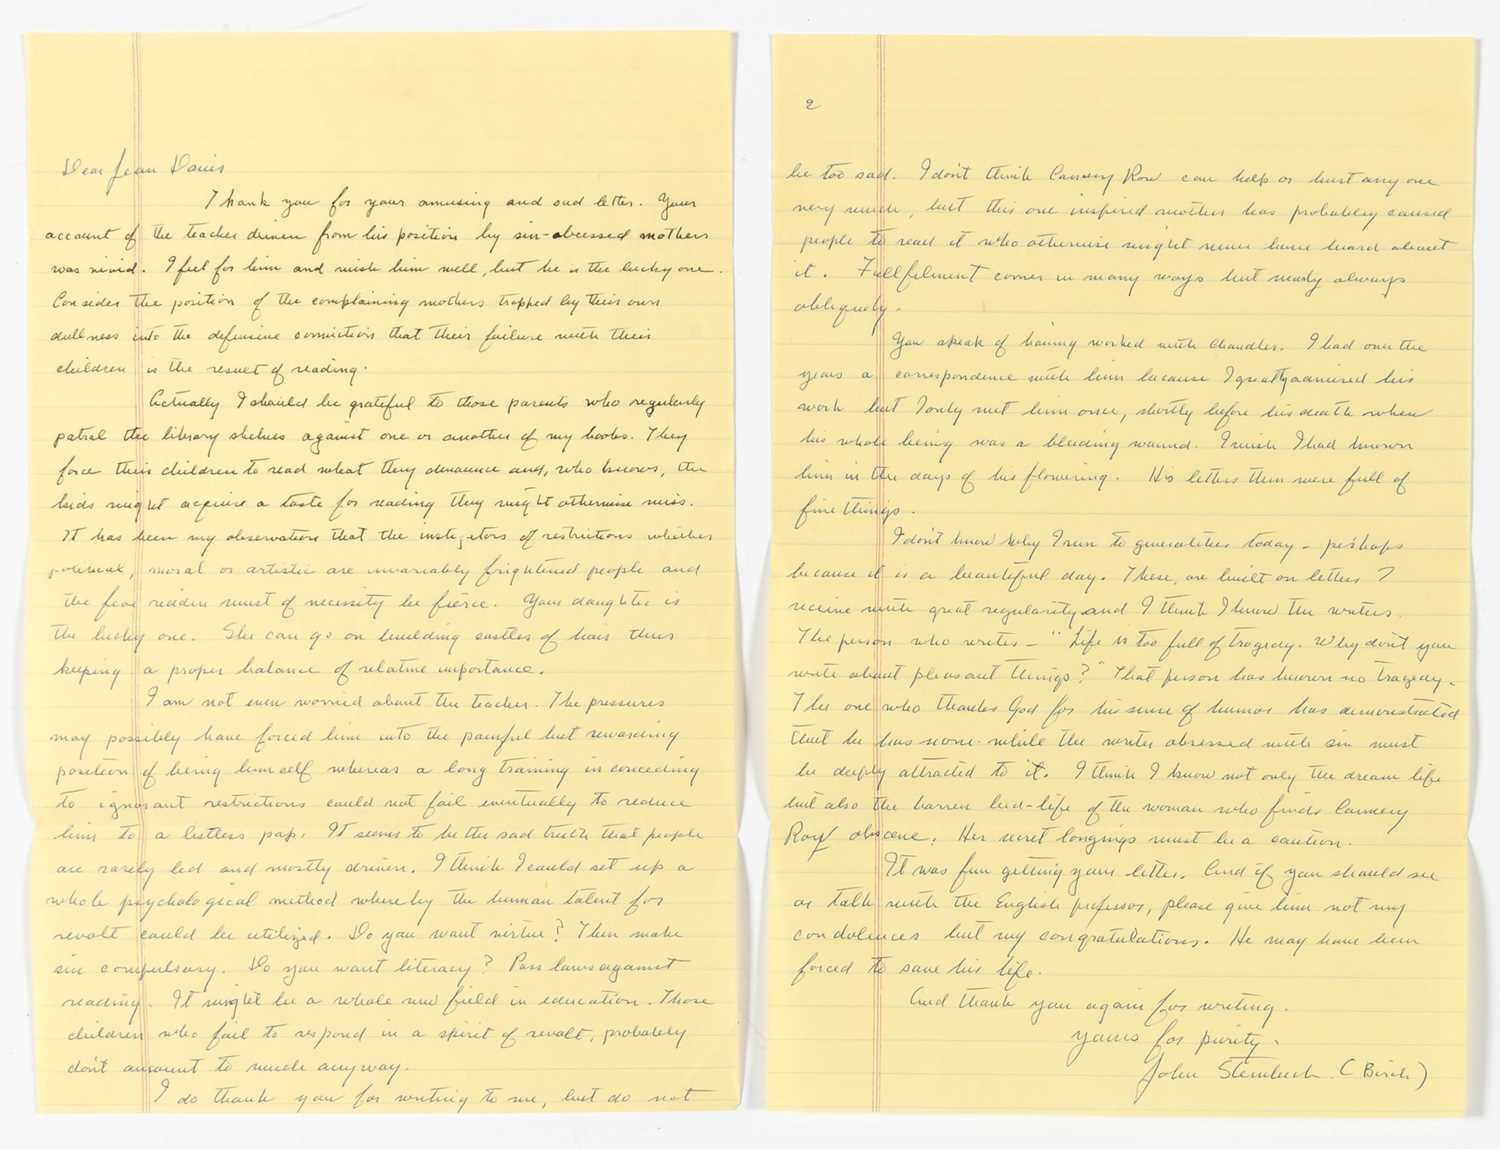 Dear Jean Davis
Thank you for your amusing and sad letter. Your
account of the teacher driven from his position by sin-obsessed mothers
was vivid. I feel for him and wish him well, but he is the lucky one.
Consider the position of the complaining mothers trapped by their own
dullness into the defensive conviction that their failure with their
children is the result of reading.
Actually I should be grateful to those parents who regularly
patrol the library shelves against one or another of my books. They
force their children to read what they denounce and, who knows, the
kids might acquire a taste for reading they might otherwise miss.
It has been my observation that the instigators of restrictions whether
political, moral or artistic are invariably frightened people and
the fear ridden must of necessity be fierce. Your daughter is
the lucky one. She can go on building castles of hair thus
keeping a proper balance of relative importance.
I am not even worried about the teacher. The pressures
may possibly have forced him into the painful but rewarding
position of being himself whereas a long training in conceding
to ignorant restrictions could not fail eventually to reduce
him to a listless pap. It seems to be the sad truth that people
are rarely led and mostly driven. I think I could set up a
whole psychological method whereby the human talent for
revolt could be utilized. Do you want virtue? Then make
sin compulsary. Do you want literacy? Pass laws against
reading. It might be a whole new field in education. Those
children who fail to respond in a spirit of revolt, probably
don't amount to much anyway.
I do thank you for writing to me, but do not
2
be too sad. I don't think Cannery Row can help or hurt any one
very much, but this one inspired mother has probably caused
people to read it who otherwise might never have heard about
it. Fullfilment comes in many ways but nearly always
obliquely.
You speak of having worked with Chandler. I had over the
years a correspondence with him because I greatly admired his
work but I only met him once, shortly before his death when
his whole being was a bleeding wound. I wish I had known
him in the days of his flowering. His letters then were full of
fine things.
I don't know why I run to generalities today - perhaps
because it is a beautiful day. These, are built on letters I
receive with great regularity and I think I know the writers.
The person who writes - "Life is too full of tragedy. Why don't you
write about pleasant things?" That person has known no tragedy.
The one who thanks God for his sense of humor has demonstrated
that he has none while the writer obsessed with sin must
be deeply attracted to it. I think I know not only the dream life
but also the barren bed-life of the woman who finds Cannery
Row obscene. Her secret longings must be a caution.
It was fun getting your letter. And if you should see
or talk with the English professor, please give him not my
condolences but my congratulations. He may have been
forced to save his life.
And thank you again for writing.
yours for purity.
John Steinbeck (Birch)